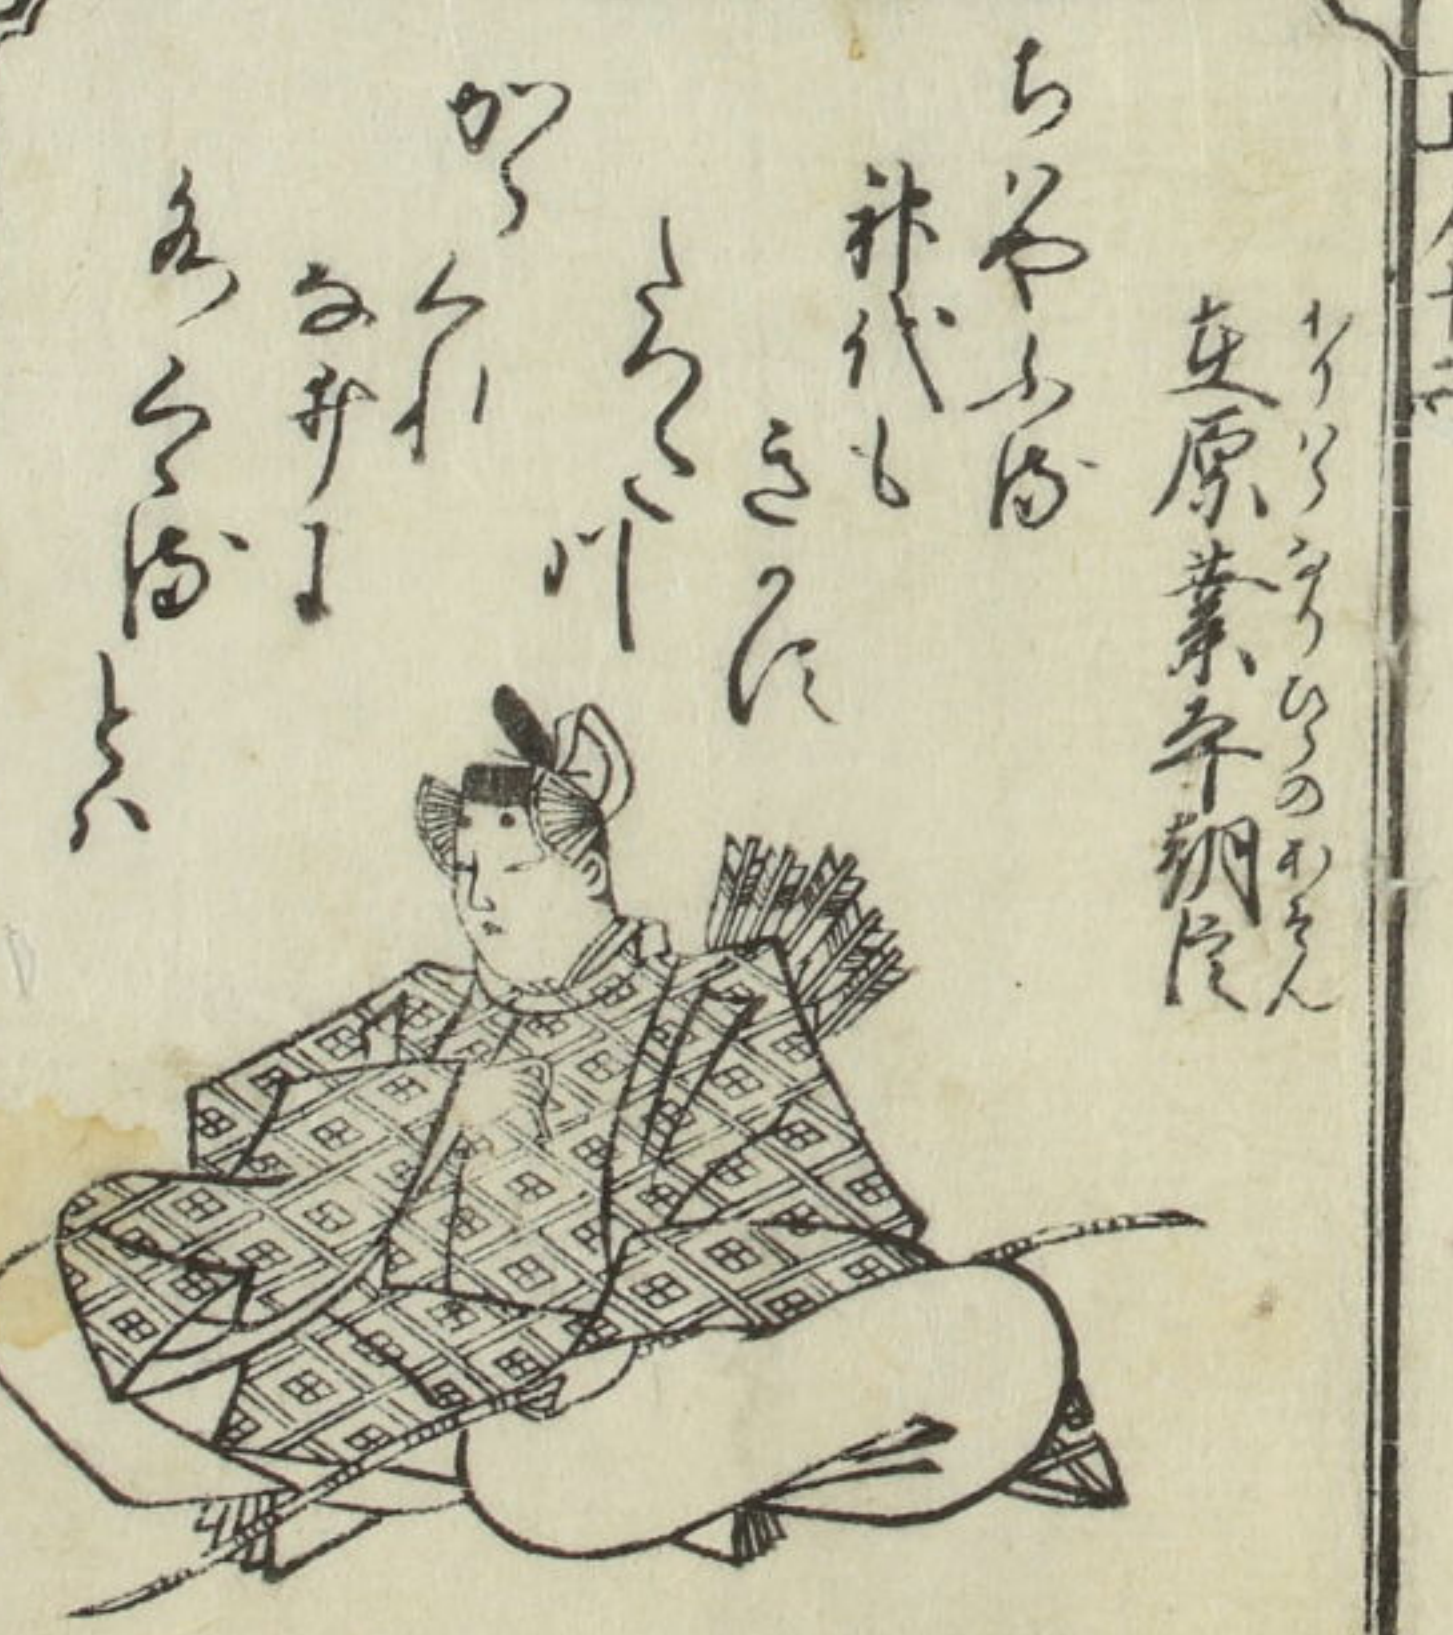 ありハらなりひらのあそん
在原業平朝臣
ちハやふる
神代も
きかす
たつた
川
から
くれ
な井に
水くゝる
とハ